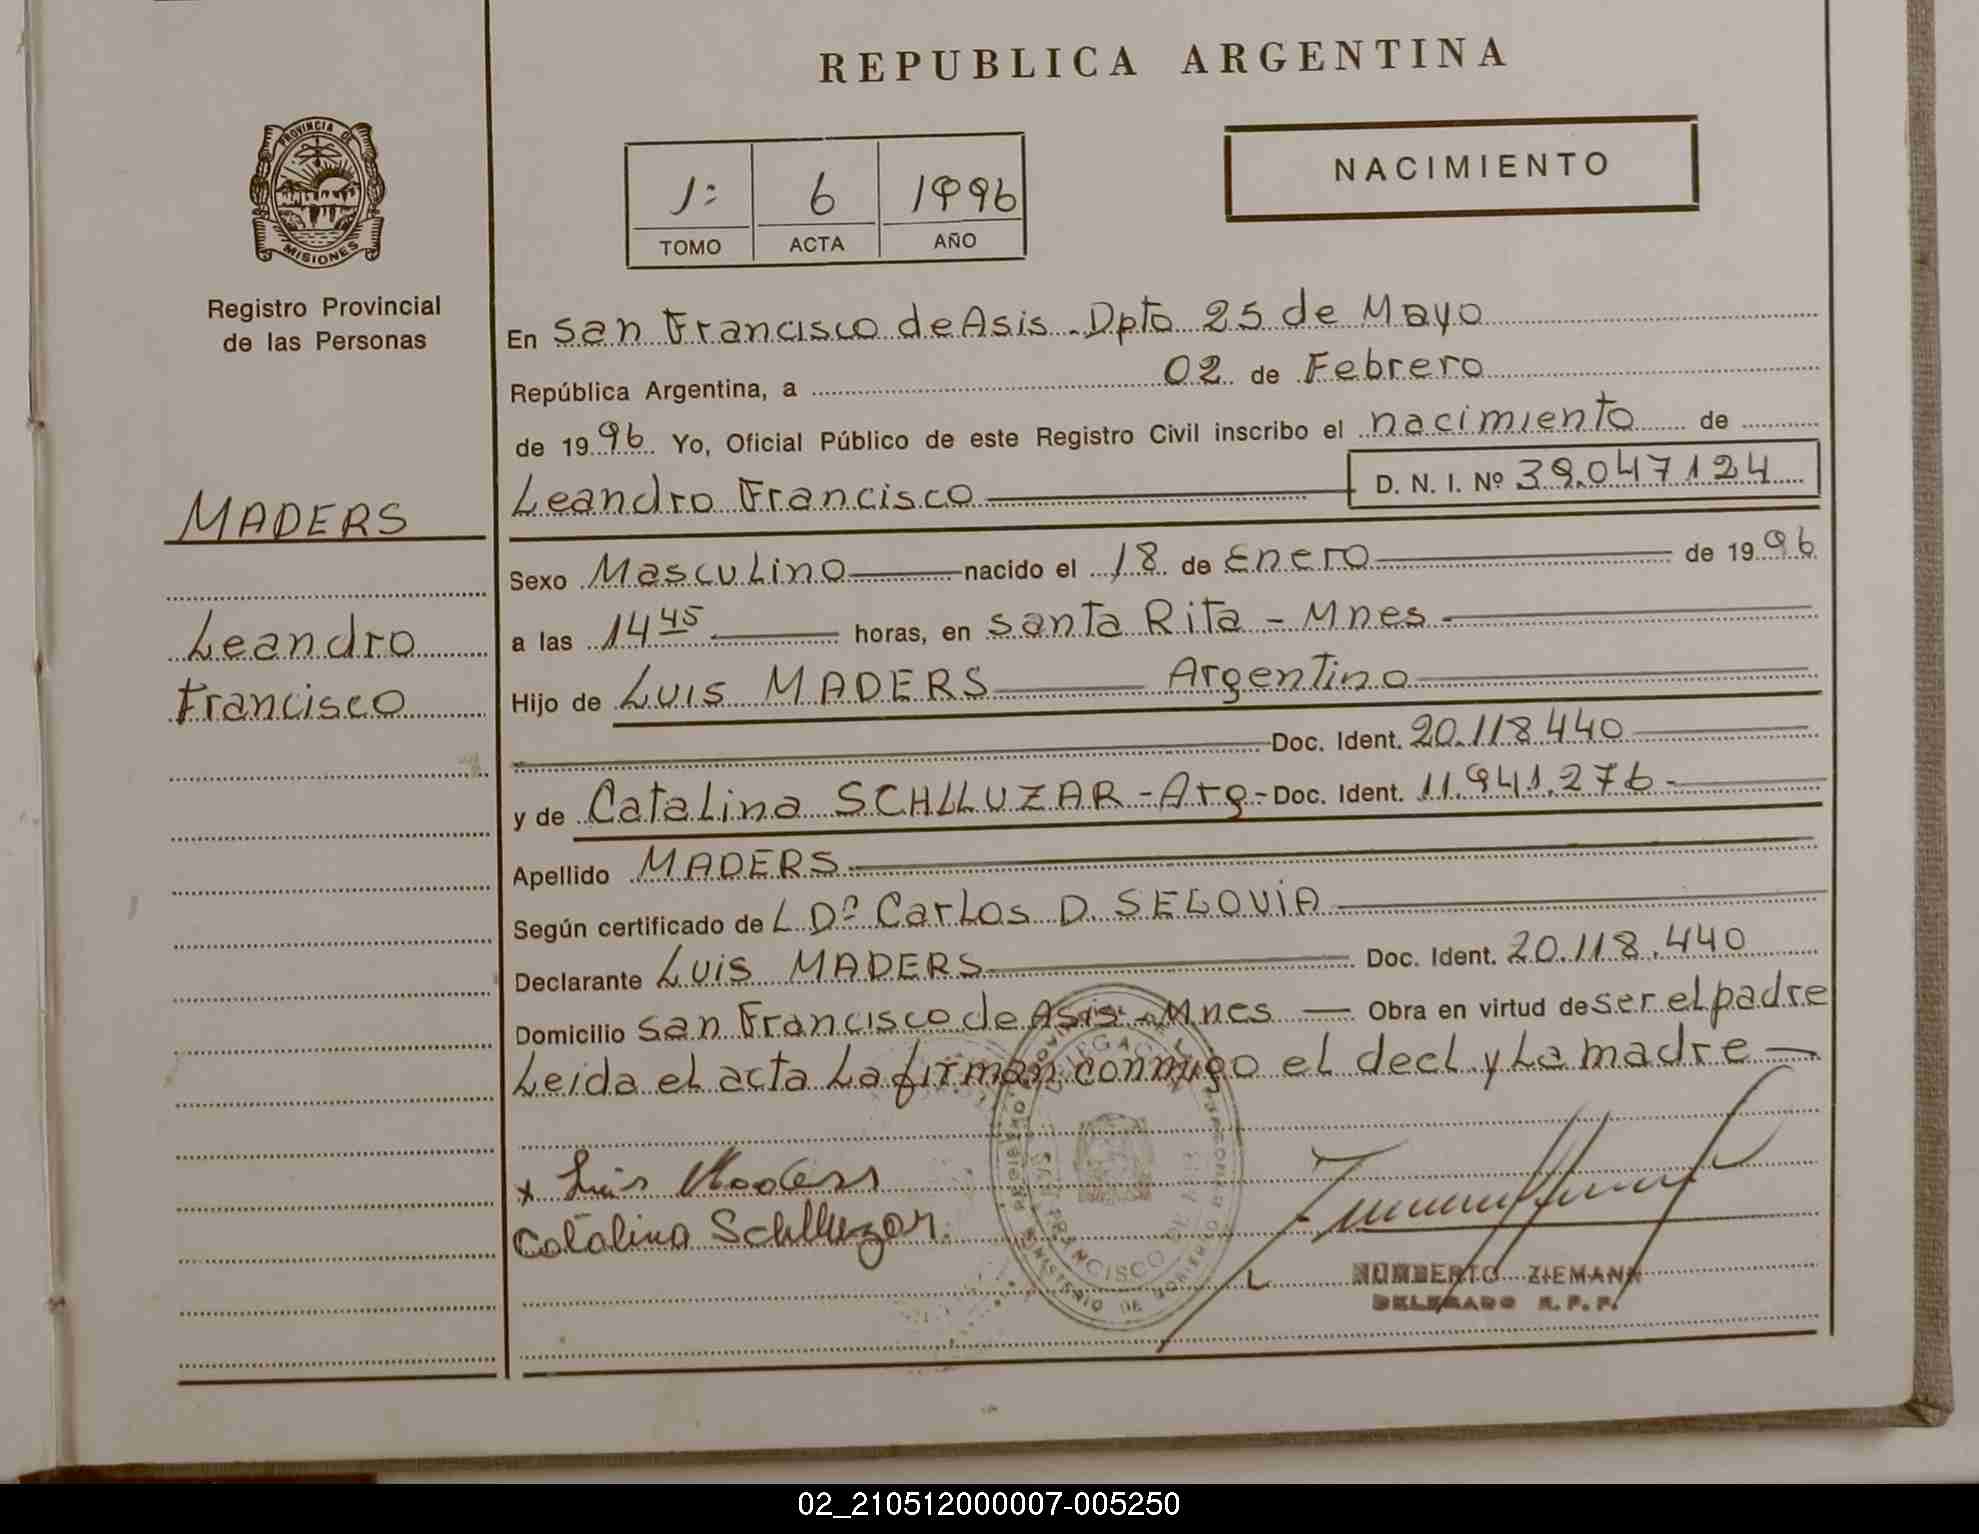 REPUBLICA ARGENTINA
PROVINCIA DE
MISIONES
Registro Provincial
de las Personas
1º
6
1996
TOMO
ACTA
AÑO
NACIMIENTO
MADERS
Leandro
Francisco
En San Francisco de Asis. Dpto 25 de Mayo
República Argentina, a 02 de Febrero
de 1996 Yo, Oficial Público de este Registro Civil inscribo el nacimiento de
Leandro Francisco D. N. I. Nº 39.047124
Sexo Masculino nacido el 18 de Enero de 1996
a las 14 45 horas, en Santa Rita - Mnes
Hijo de Luis MADERS Argentino
Doc. Ident. 20.118.440
y de Catalina SCHLLUZAR - Arg - Doc. Ident. 11.941.276
Apellido MADERS
Según certificado de L Dº Carlos D. SEGOVIA
Declarante Luis MADERS Doc. Ident. 20.118.440
Domicilio San Francisco de Asis - Mnes Obra en virtud de ser el padre
Leida el acta La firman conmigo el decl. y La madre
x Luis Maders
Catalina Schlluzar
FRANCISCO DE
MINISTERIO DE GOBIERNO
HUMBERTO ZIEMANN
DELEGADO R.P.P.
02_210512000007-005250